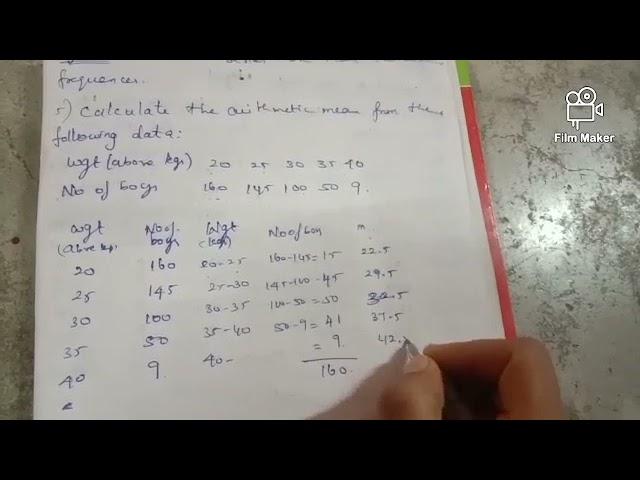 frequences.
Film Maker
5) Calculate the arithmetic mean from the
following data:
Wgt (above kgs) 20 25 30 35 40
No of boys 160 145 100 50 9.
Wgt No of Wgt No of boy m
(above kgs) boys (kgs)
20 160 20-25 160-145=15 22.5
25 145 25-30 145-100-45 29.5
30 100 30-35 100-50=50 32.5
35 50 35-40 50-9=41 37.5
40 9. 40- = 9. 42.
160.